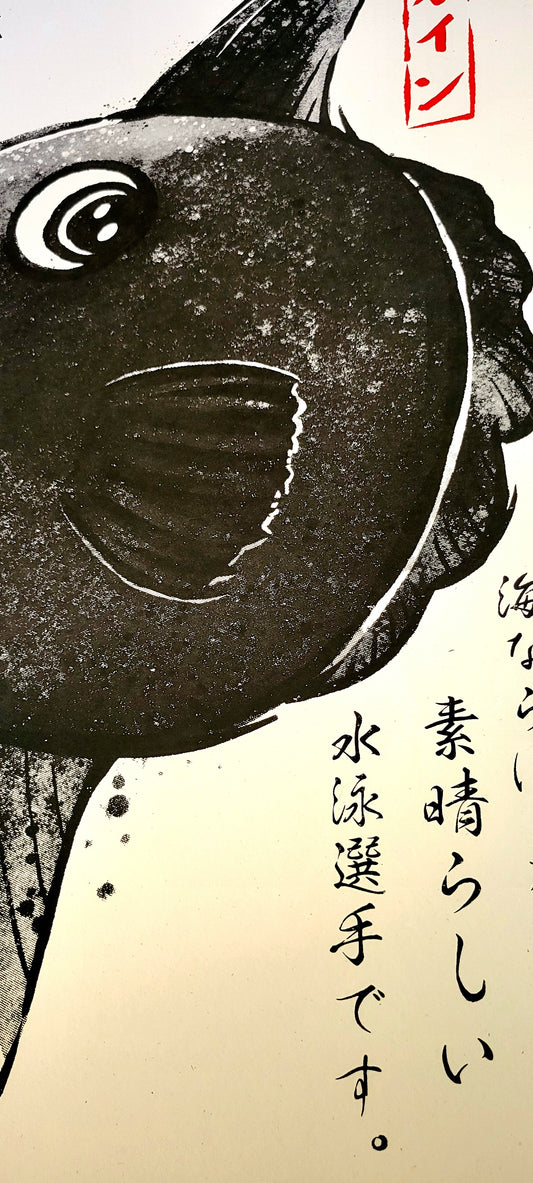 イン
海な
素晴らしい
水泳選手です。